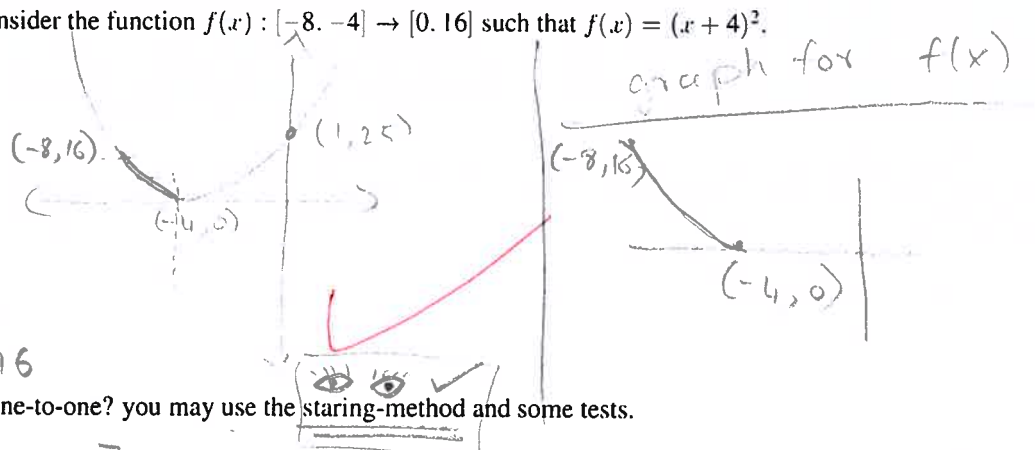 nsider the function f(x) : [−8. −4] → [0. 16] such that f(x) = (x + 4)².
graph for f(x)
(1,25)
(-8,16)
(-8,16)
(-4,0)
(-4,0)
16
ne-to-one? you may use the staring-method and some tests.